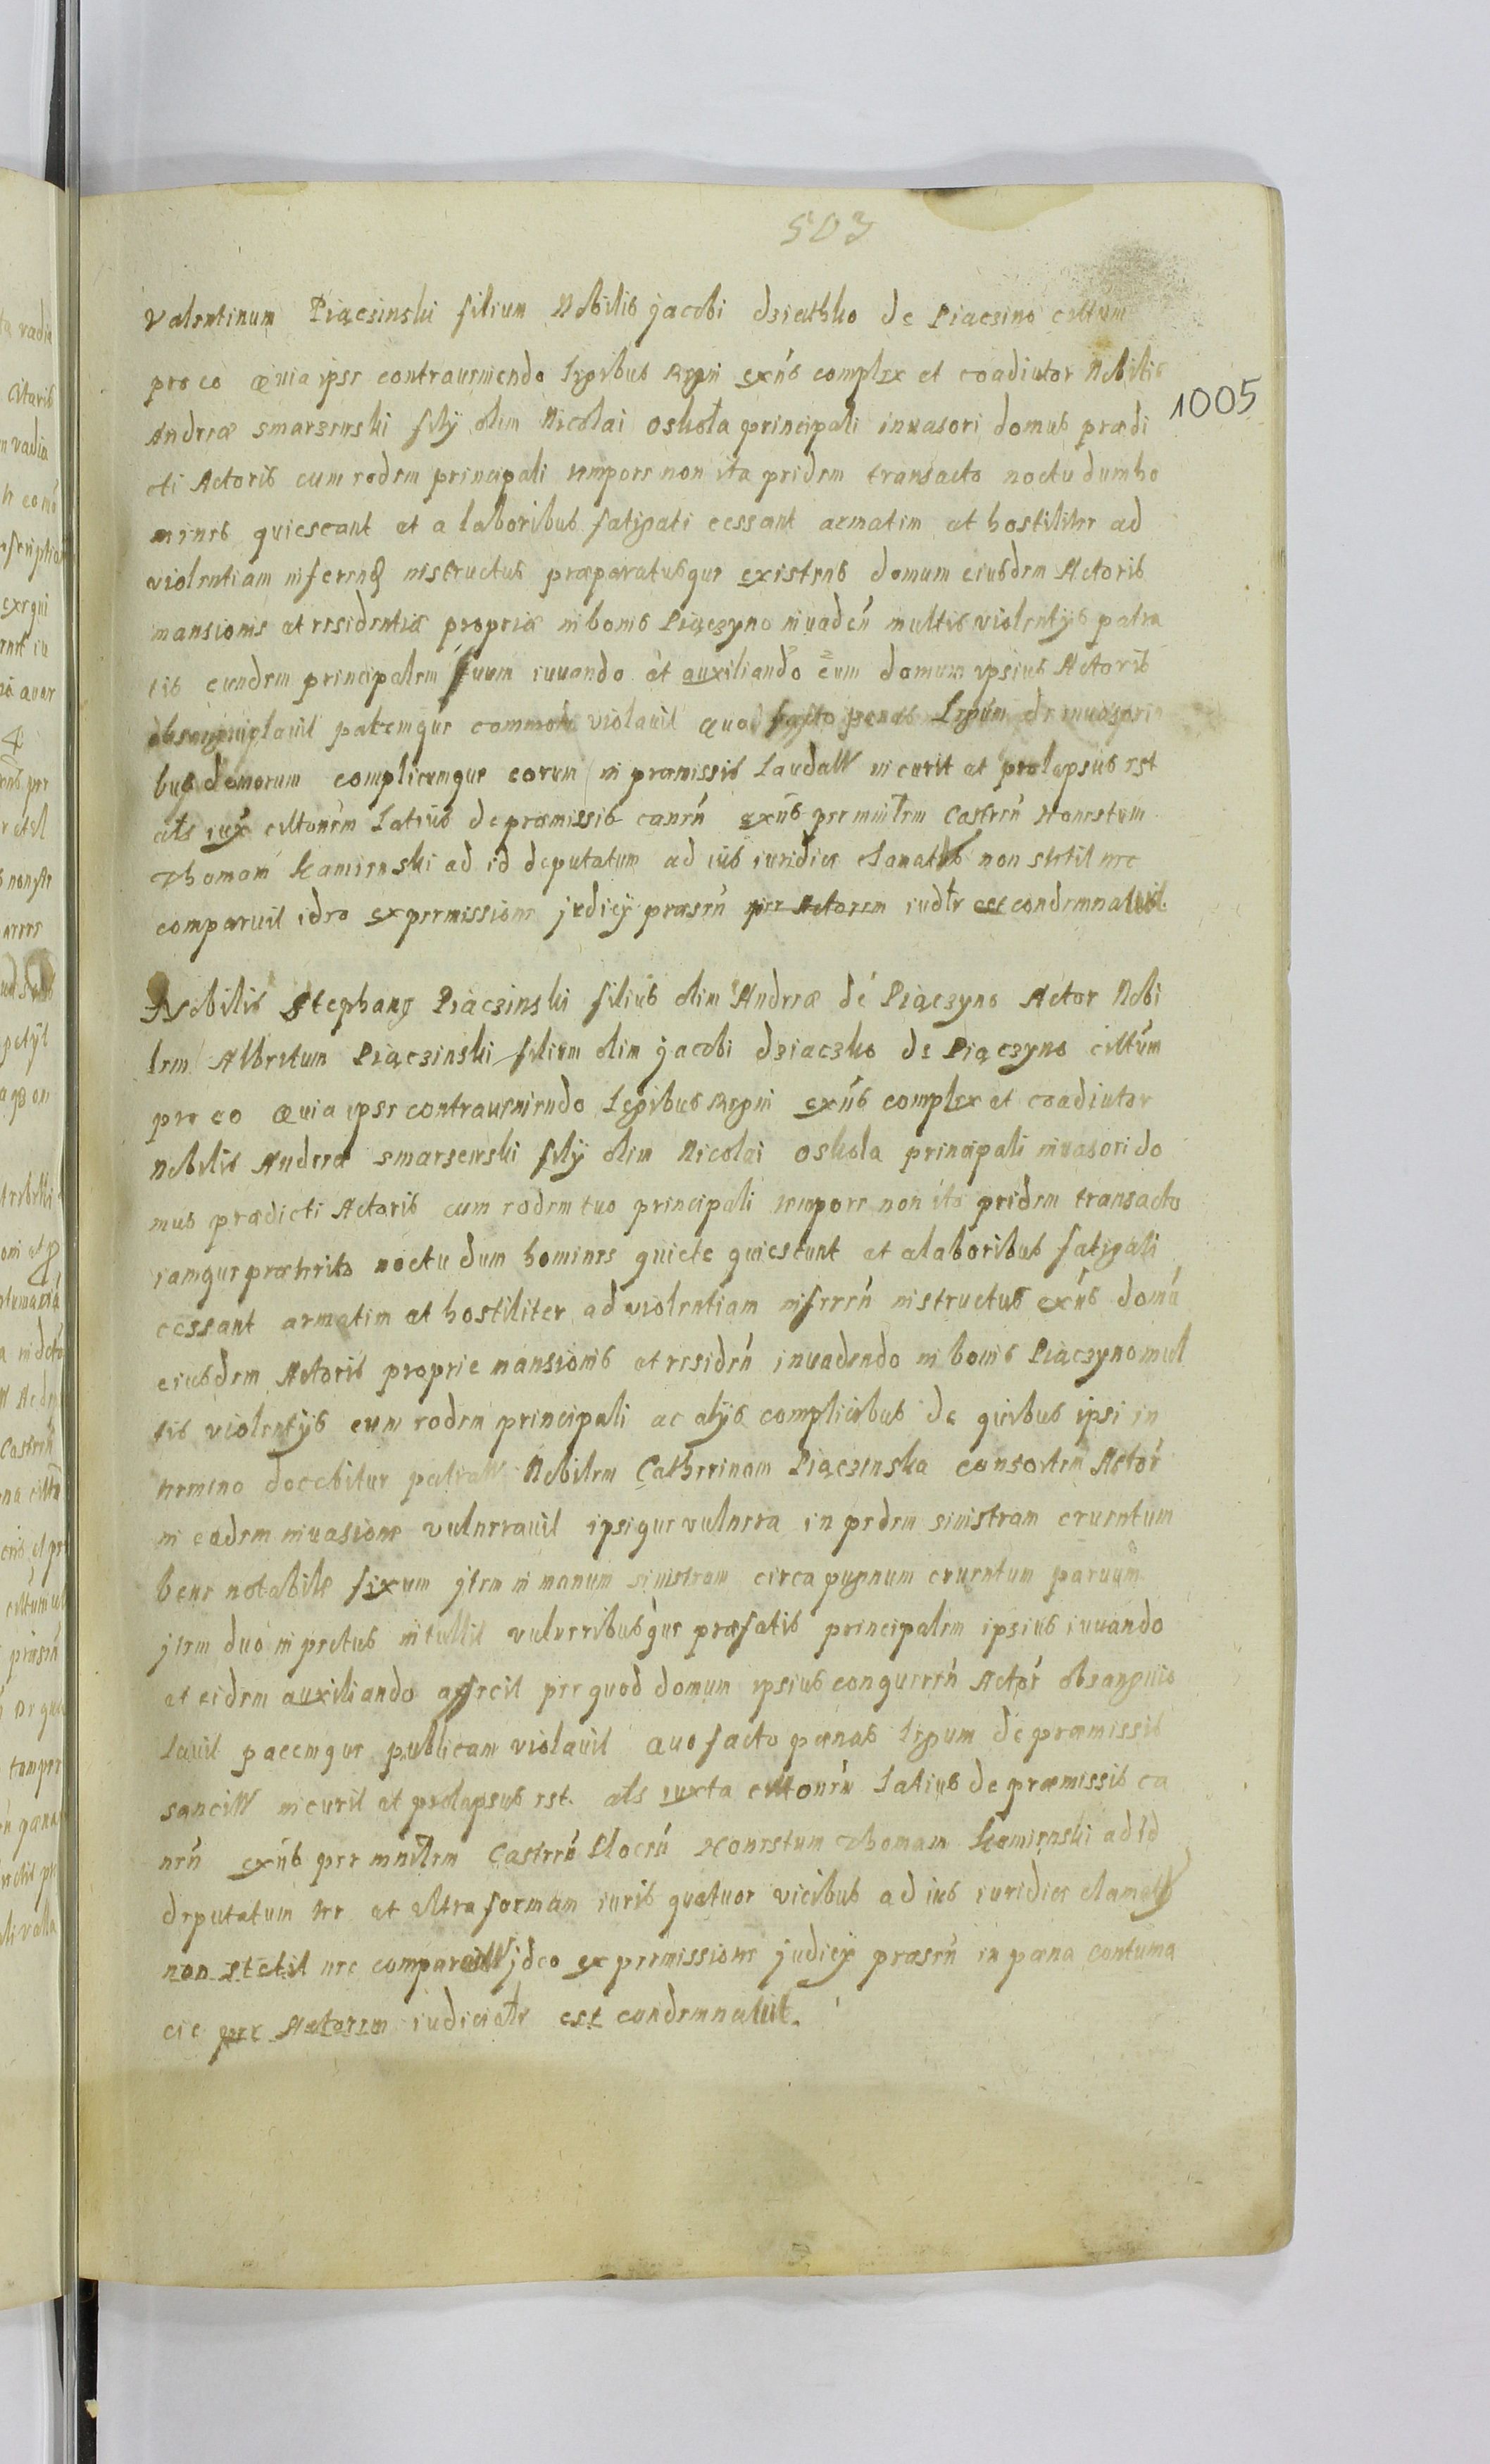 503
1005
Valentinum Piączinski filium Nobilis jacobi dziathko de Piaczino cittum
pro eo Quia ipse contraueniendo Legibus Regni exñs complex et coadiutor Nobilis
Andreæ Smarzewski filij olim Nicolai Oskoła principali inuasori domus prædi
cti Actoris cum eodem principali tempore non ita pridem transacto noctu dum ho
mines quiescant et a laboribus fatigati cessant armatim et hostiliter ad
violentiam inferend instructus præparatusque existens domum eiusdem Actoris
mansionis et residentiæ propriæ in bonis Piączyno inuadeń multis violentijs patra
tis eundem principalem suum iuuando et auxiliando eum domum ipsius Actoris
obsanguiglauit pacemque commem violauit Quo facto penas Legum de inuasorin
bus domorum complicumque eorum in præmissis Laudatt incurit et prolapsus est
ats iux cittonem Latius de præmissis caneń exñs per miñtrem Castreń Honestum
Thomam Kamienski ad id deputatum ad ius iuridice clamatus non stetit nec
comparuit ideo ex permissione judicij præseń per Actorem iudtr est condemnatus.
Nobilis Stephang Piaczinski filius olim Andreæ de Piączyno Actor Nobi
lem Albertum Piączinski filium olim jacobi dziaczko de Piączyno cittum
pro eo Quia ipse contraueniendo Legibus Regni exñs complex et coadiutor
Nobilis Andreæ Smarzewski filij olim Nicolai Oskola principali inuasori do
mus prædicti Actoris cum eodem suo principali tempore non ita pridem transacto
iamque præterito noctu dum homines quiete quiescunt et a laboribus fatigati
cessant armatim et hostiliter ad violentiam infereń instructus exñs domū
eiusdem Actoris proprie mansionis et resideń inuadendo in bonis Piączyno mul
tis violentijs cum eodem principali ac alijs complicibus de quibus ipsi in
termino docebitur patratt Nobilem Catherinam Piączinska consortem Actoŕ
in eadem inuasione vulnerauit ipsique vulnera in pedem sinistram cruentum
bene notabile fixum jtem in manum sinistram circa pugnum cruentum paruum
jtem duo in pectus intullit vulneribusque præfatis principalem ipsius iuuando
et eidem auxiliando affecit per quod domum ipsius conquereń Actoŕ obsanguio
lauit pacemque publicam violauit Quo facto pænas Legum de præmissis
sancitt incurit et prolapsus est. ats iuxta cittoneń Latius de præmissis ca
neń exñs per mnitrem Castreń Ploceń Honestum Thomam Kamienski ad id
deputatum ter et ultra formam iuris quatuor vicibus ad ius iuridice clamatus
non stetit nec comparuitt jdeo ex permissione judicij præseń in pæna contuma
cie per Actorem iudicialr est condemnatus.